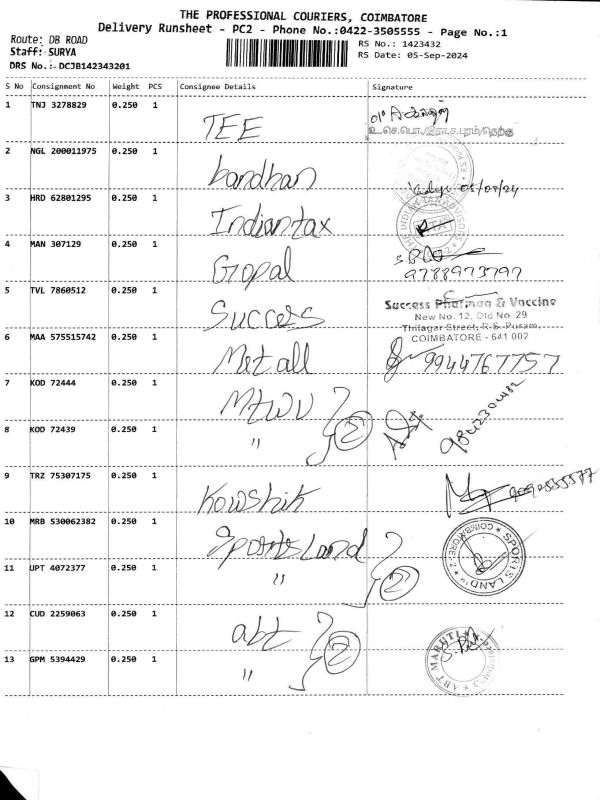 THE PROFESSIONAL COURIERS, COIMBATORE
Delivery Runsheet - PC2 - Phone No.:0422-3505555 - Page No.:1
Route: DB ROAD
Staff: SURYA
DRS No.:- DCJB142343201
RS No.: 1423432
RS Date: 05-Sep-2024
S No Consignment No Weight PCS Consignee Details Signature
1 TNJ 3278829 0.250 1 TEE
உ.செ.பொ./இரா.ச.புரம்/தெற்கு
2 NGL 200011975 0.250 1 bandhan
3 HRD 62801295 0.250 1 Indiantax
4 MAN 307129 0.250 1 Gopal
9788973797
5 TVL 7860512 0.250 1 Success
Success Pharma & Vaccine
New No. 12, Old No. 29
Thilagar Street, R.S. Puram,
COIMBATORE - 641 002
6 MAA 575515742 0.250 1 Metall 9944767757
7 KOD 72444 0.250 1
8 KOD 72439 0.250 1 " 2
9 TRZ 75307175 0.250 1 Kowshik
10 MRB 530062382 0.250 1 SportsLand
SPORTS LAND COIMBATORE-2
11 UPT 4072377 0.250 1 " 2
12 CUD 2259063 0.250 1 abt
ABT MARUTI
13 GPM 5394429 0.250 1 " 2